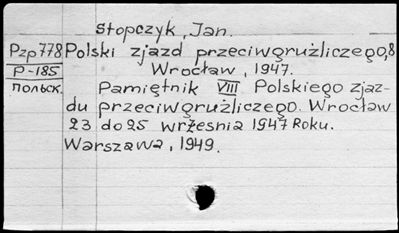 Stopczyk, Jan.
Pzp778 Polski zjazd przeciwgruźliczego, 8
P-185 Wrocław, 1947.
польск. Pamiętnik VIII Polskiego zjaz-
du przeciwgruźliczego. Wrocław
23 do 25 września 1947 Roku.
Warszawa, 1949.